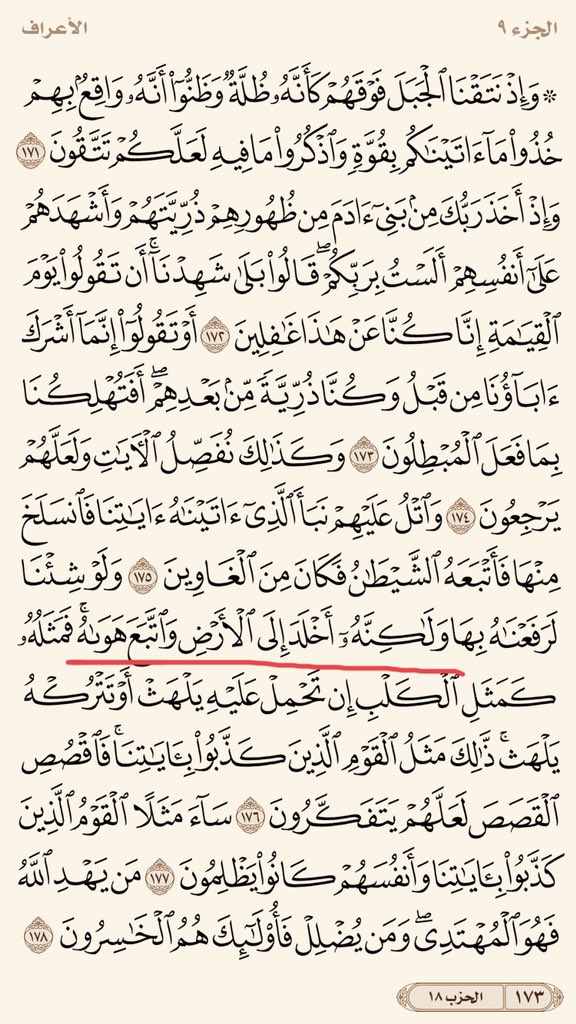 الجزء ٩
الأعراف
۞ وَإِذْ نَتَقْنَا ٱلْجَبَلَ فَوْقَهُمْ كَأَنَّهُۥ ظُلَّةٌ وَظَنُّوٓا۟ أَنَّهُۥ وَاقِعٌۢ بِهِمْ
خُذُوا۟ مَآ ءَاتَيْنَٰكُم بِقُوَّةٍ وَٱذْكُرُوا۟ مَا فِيهِ لَعَلَّكُمْ تَتَّقُونَ ١٧١
وَإِذْ أَخَذَ رَبُّكَ مِنۢ بَنِىٓ ءَادَمَ مِن ظُهُورِهِمْ ذُرِّيَّتَهُمْ وَأَشْهَدَهُمْ
عَلَىٰٓ أَنفُسِهِمْ أَلَسْتُ بِرَبِّكُمْ ۖ قَالُوا۟ بَلَىٰ شَهِدْنَآ ۚ أَن تَقُولُوا۟ يَوْمَ
ٱلْقِيَٰمَةِ إِنَّا كُنَّا عَنْ هَٰذَا غَٰفِلِينَ ١٧٢ أَوْ تَقُولُوٓا۟ إِنَّمَآ أَشْرَكَ
ءَابَآؤُنَا مِن قَبْلُ وَكُنَّا ذُرِّيَّةً مِّنۢ بَعْدِهِمْ ۖ أَفَتُهْلِكُنَا
بِمَا فَعَلَ ٱلْمُبْطِلُونَ ١٧٣ وَكَذَٰلِكَ نُفَصِّلُ ٱلْءَايَٰتِ وَلَعَلَّهُمْ
يَرْجِعُونَ ١٧٤ وَٱتْلُ عَلَيْهِمْ نَبَأَ ٱلَّذِىٓ ءَاتَيْنَٰهُ ءَايَٰتِنَا فَٱنسَلَخَ
مِنْهَا فَأَتْبَعَهُ ٱلشَّيْطَٰنُ فَكَانَ مِنَ ٱلْغَاوِينَ ١٧٥ وَلَوْ شِئْنَا
لَرَفَعْنَٰهُ بِهَا وَلَٰكِنَّهُۥٓ أَخْلَدَ إِلَى ٱلْأَرْضِ وَٱتَّبَعَ هَوَىٰهُ ۚ فَمَثَلُهُۥ
كَمَثَلِ ٱلْكَلْبِ إِن تَحْمِلْ عَلَيْهِ يَلْهَثْ أَوْ تَتْرُكْهُ
يَلْهَث ۚ ذَّٰلِكَ مَثَلُ ٱلْقَوْمِ ٱلَّذِينَ كَذَّبُوا۟ بِـَٔايَٰتِنَا ۚ فَٱقْصُصِ
ٱلْقَصَصَ لَعَلَّهُمْ يَتَفَكَّرُونَ ١٧٦ سَآءَ مَثَلًا ٱلْقَوْمُ ٱلَّذِينَ
كَذَّبُوا۟ بِـَٔايَٰتِنَا وَأَنفُسَهُمْ كَانُوا۟ يَظْلِمُونَ ١٧٧ مَن يَهْدِ ٱللَّهُ
فَهُوَ ٱلْمُهْتَدِى ۖ وَمَن يُضْلِلْ فَأُو۟لَٰٓئِكَ هُمُ ٱلْخَٰسِرُونَ ١٧٨
١٧٣ الحزب ١٨